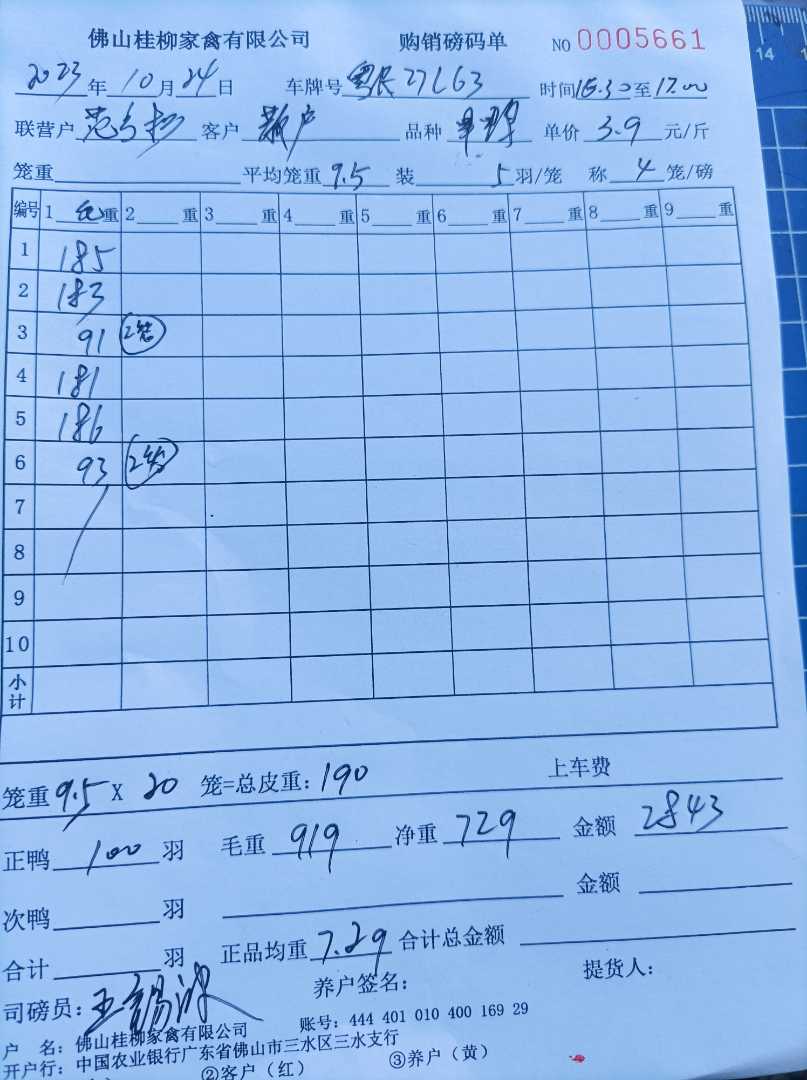 佛山桂柳家禽有限公司 购销磅码单 NO 0005661
2023年10月24日 车牌号 27L63 时间15.30至17.00
联营户 客户 散户 品种 单价 3.9 元/斤
笼重 平均笼重 9.5 装 5羽/笼 称 4笼/磅
编号 1 毛重 2 重 3 重 4 重 5 重 6 重 7 重 8 重 9 重
1 185
2 183
3 91 2笼
4 181
5 186
6 93 2笼
7
8
9
10
小计
笼重 9.5 X 20 笼=总皮重: 190 上车费
正鸭 100 羽 毛重 919 净重 729 金额 2843
次鸭 羽 金额
合计 羽 正品均重 7.29 合计总金额
司磅员: 王锡冰 养户签名: 提货人:
户 名: 佛山桂柳家禽有限公司 账号: 444 401 010 400 169 29
开户行: 中国农业银行广东省佛山市三水区三水支行
②客户（红） ③养户（黄）